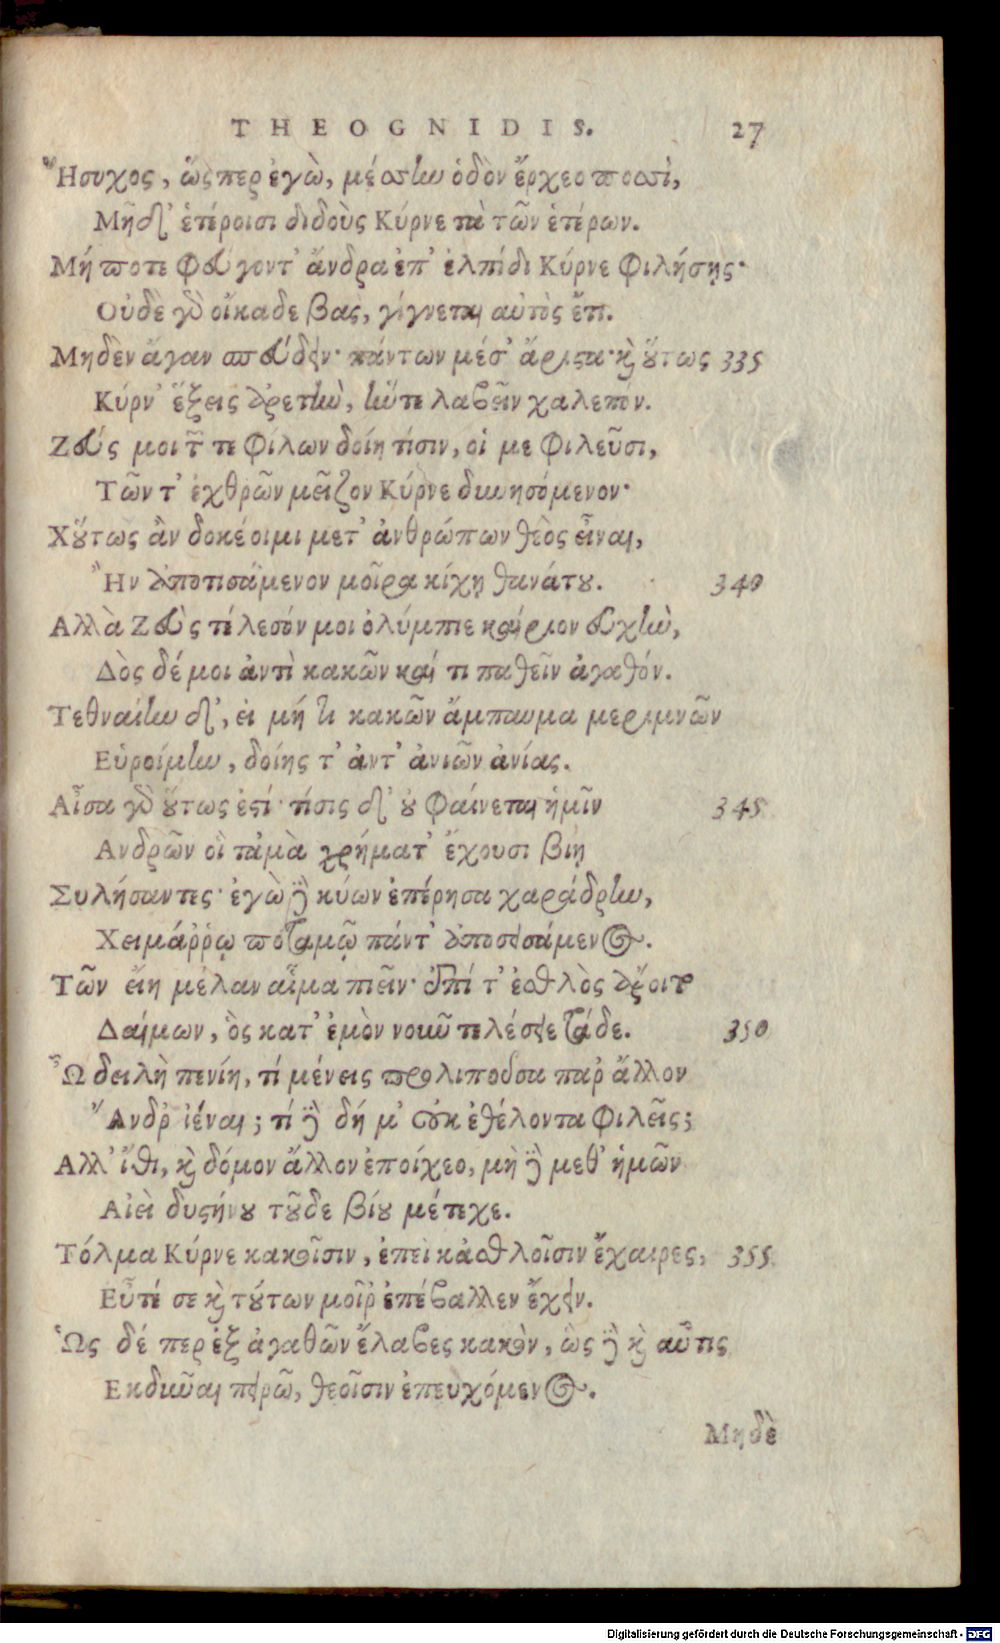 THEOGNIDIS. 27
Ἥσυχος, ὥσπερ ἐγὼ, μέσσην ὁδὸν ἔρχεο ποσὶ,
Μηδ' ἑτέροισι διδοὺς Κύρνε τὰ τῶν ἑτέρων.
Μή ποτε φεύγοντ' ἄνδρα ἐπ' ἐλπίδι Κύρνε φιλήσῃς·
Οὐδὲ γὰρ οἴκαδε βὰς, γίγνεται αὐτὸς ἔτι.
Μηδὲν ἄγαν σπεύδειν· πάντων μέσ' ἄριστα· καὶ οὕτως 335
Κύρν' ἕξεις ἀρετὴν, ἥντε λαβεῖν χαλεπόν.
Ζεύς μοι τῶν τε φίλων δοίη τίσιν, οἵ με φιλεῦσι,
Τῶν τ' ἐχθρῶν μεῖζον Κύρνε δυνησόμενον·
Χοὕτως ἂν δοκέοιμι μετ' ἀνθρώπων θεὸς εἶναι,
Ἢν ἀποτισάμενον μοῖρα κίχῃ θανάτου. 340
Ἀλλὰ Ζεὺς τέλεσόν μοι ὀλύμπιε καίριον εὐχὴν,
Δὸς δέ μοι ἀντὶ κακῶν καί τι παθεῖν ἀγαθόν.
Τεθναίην δ', εἰ μή τι κακῶν ἄμπαυμα μεριμνῶν
Εὑροίμην, δοίης τ' ἀντ' ἀνιῶν ἀνίας.
Αἶσα γὰρ οὕτως ἐστί· τίσις δ' οὐ φαίνεται ἡμῖν 345
Ἀνδρῶν οἳ τἀμὰ χρήματ' ἔχουσι βίῃ
Συλήσαντες· ἐγὼ δὲ κύων ἐπέρησα χαράδρην,
Χειμάῤῥῳ ποταμῷ πάντ' ἀποσεισάμενος.
Τῶν εἴη μέλαν αἷμα πιεῖν· ἐπί τ' ἐσθλὸς ὄροιτο
Δαίμων, ὃς κατ' ἐμὸν νοῦν τελέσειε τάδε. 350
Ὦ δειλὴ πενίη, τί μένεις προλιποῦσα παρ' ἄλλον
Ἄνδρ' ἰέναι; τί δὲ δή μ' οὐκ ἐθέλοντα φιλεῖς;
Ἀλλ' ἴθι, καὶ δόμον ἄλλον ἐποίχεο, μὴ δὲ μεθ' ἡμῶν
Αἰεὶ δυστήνου τοῦδε βίου μέτεχε.
Τόλμα Κύρνε κακοῖσιν, ἐπεὶ κἀσθλοῖσιν ἔχαιρες, 355
Εὖτέ σε καὶ τούτων μοῖρ' ἐπέβαλλεν ἔχειν.
Ὡς δέ περ ἐξ ἀγαθῶν ἔλαβες κακὸν, ὣς δὲ καὶ αὖτις
Ἐκδῦναι πειρῶ, θεοῖσιν ἐπευχόμενος.
Μηδὲ
Digitalisierung gefördert durch die Deutsche Forschungsgemeinschaft - DFG